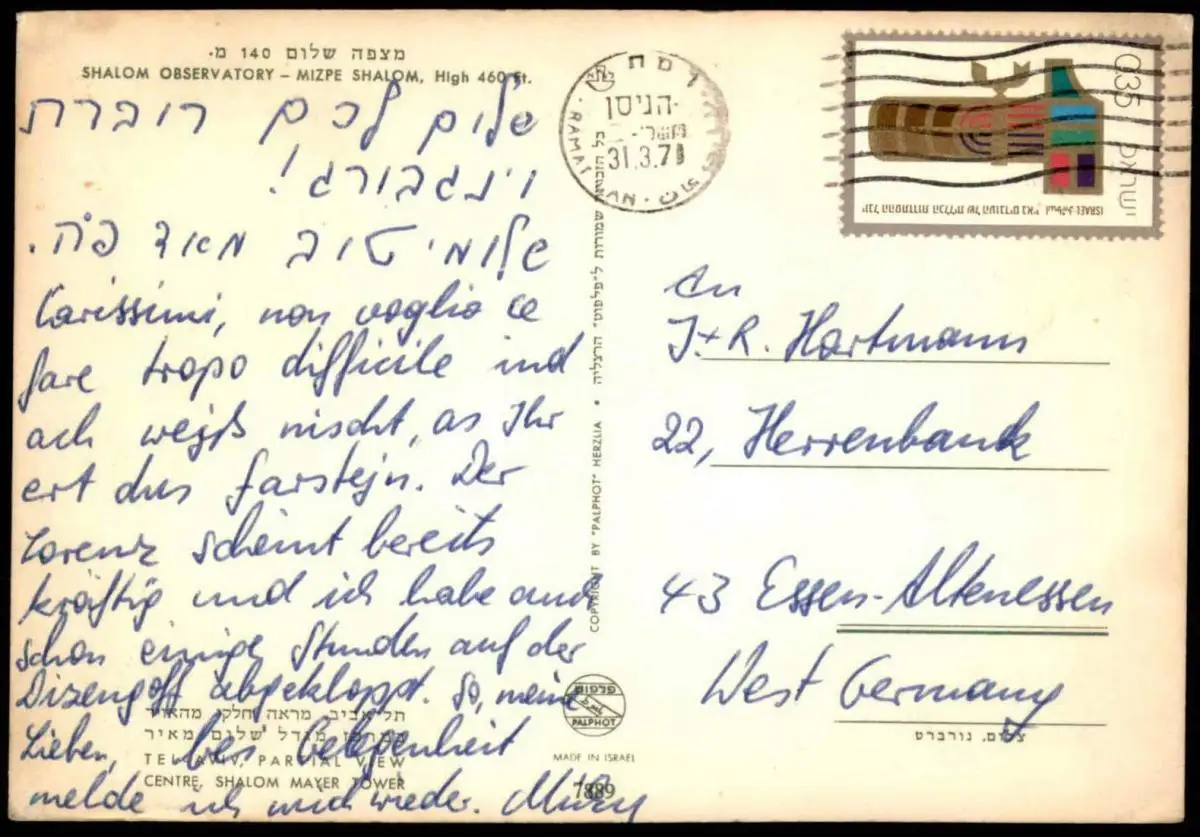 מצפה שלום 140 מ.
SHALOM OBSERVATORY – MIZPE SHALOM, High 460 Ft.
שלום לכם רוברת
וינגבורג!
שלומי טוב מאד פה.
Carissimi, non voglio ce
fare tropo difficile ind
ach weiß nischt, as Ihr
ert dus farstejn. Der
Lorenz scheint bereits
kräftig und ich habe auch
schon einige Stunden auf der
Dizengoff abgekloppt. So, meine
Lieben, bei Gelegenheit
melde ich mich wieder.
תל־אביב, מראה חלקי מהאויר
במרכז מגדל שלום מאיר
TEL AVIV, PARTIAL VIEW
CENTRE, SHALOM MAYER TOWER
כל הזכויות שמורות ל־"פלפוט" הרצליה • COPYRIGHT BY "PALPHOT" HERZLIA
פלפוט
PALPHOT
MADE IN ISRAEL
7889
רמת
הניסן
31.3.71
RAMAT GAN
ישראל
0.35
ISRAEL إسرائيل
יובל ההסתדרות הכללית של העובדים בא"י
An
I.+R. Hartmann
22, Herrenbank
43 Essen-Altenessen
West Germany
צילום, נורברט